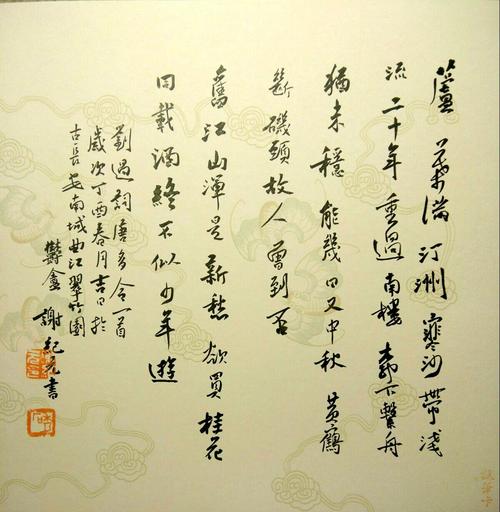 蘆葉滿汀洲寒沙帶淺
流二十年重過南樓柳下繫舟
猶未穩能幾日又中秋黃鶴
斷磯頭故人曾到否
舊江山渾是新愁欲買桂花
同載酒終不似少年遊
劉過詞唐多令一首
歲次丁酉春月吉日於
古長安南城曲江翠竹園
鬱鑫謝紀元書